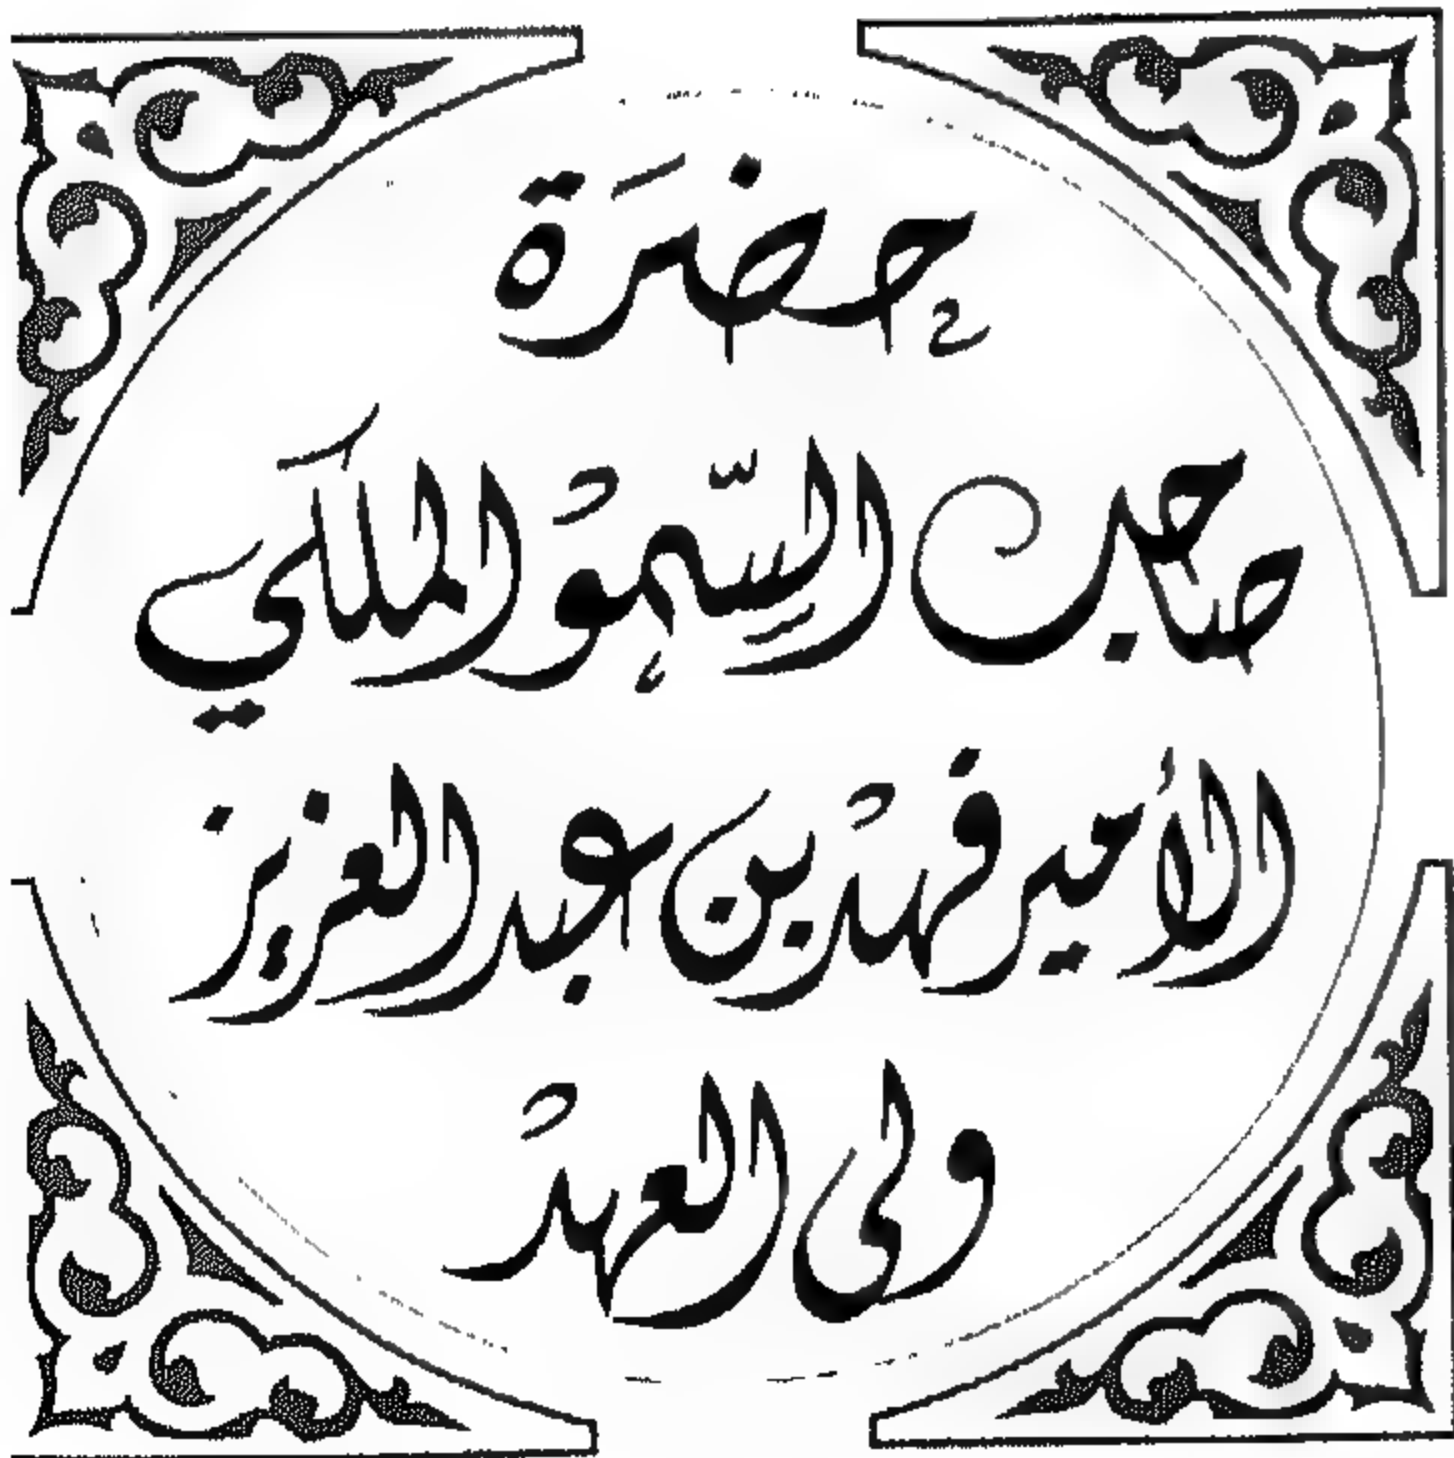 حضرة
صاحب السّمو الملكي
الأمير فهد بن عبد العزيز
ولى العهد